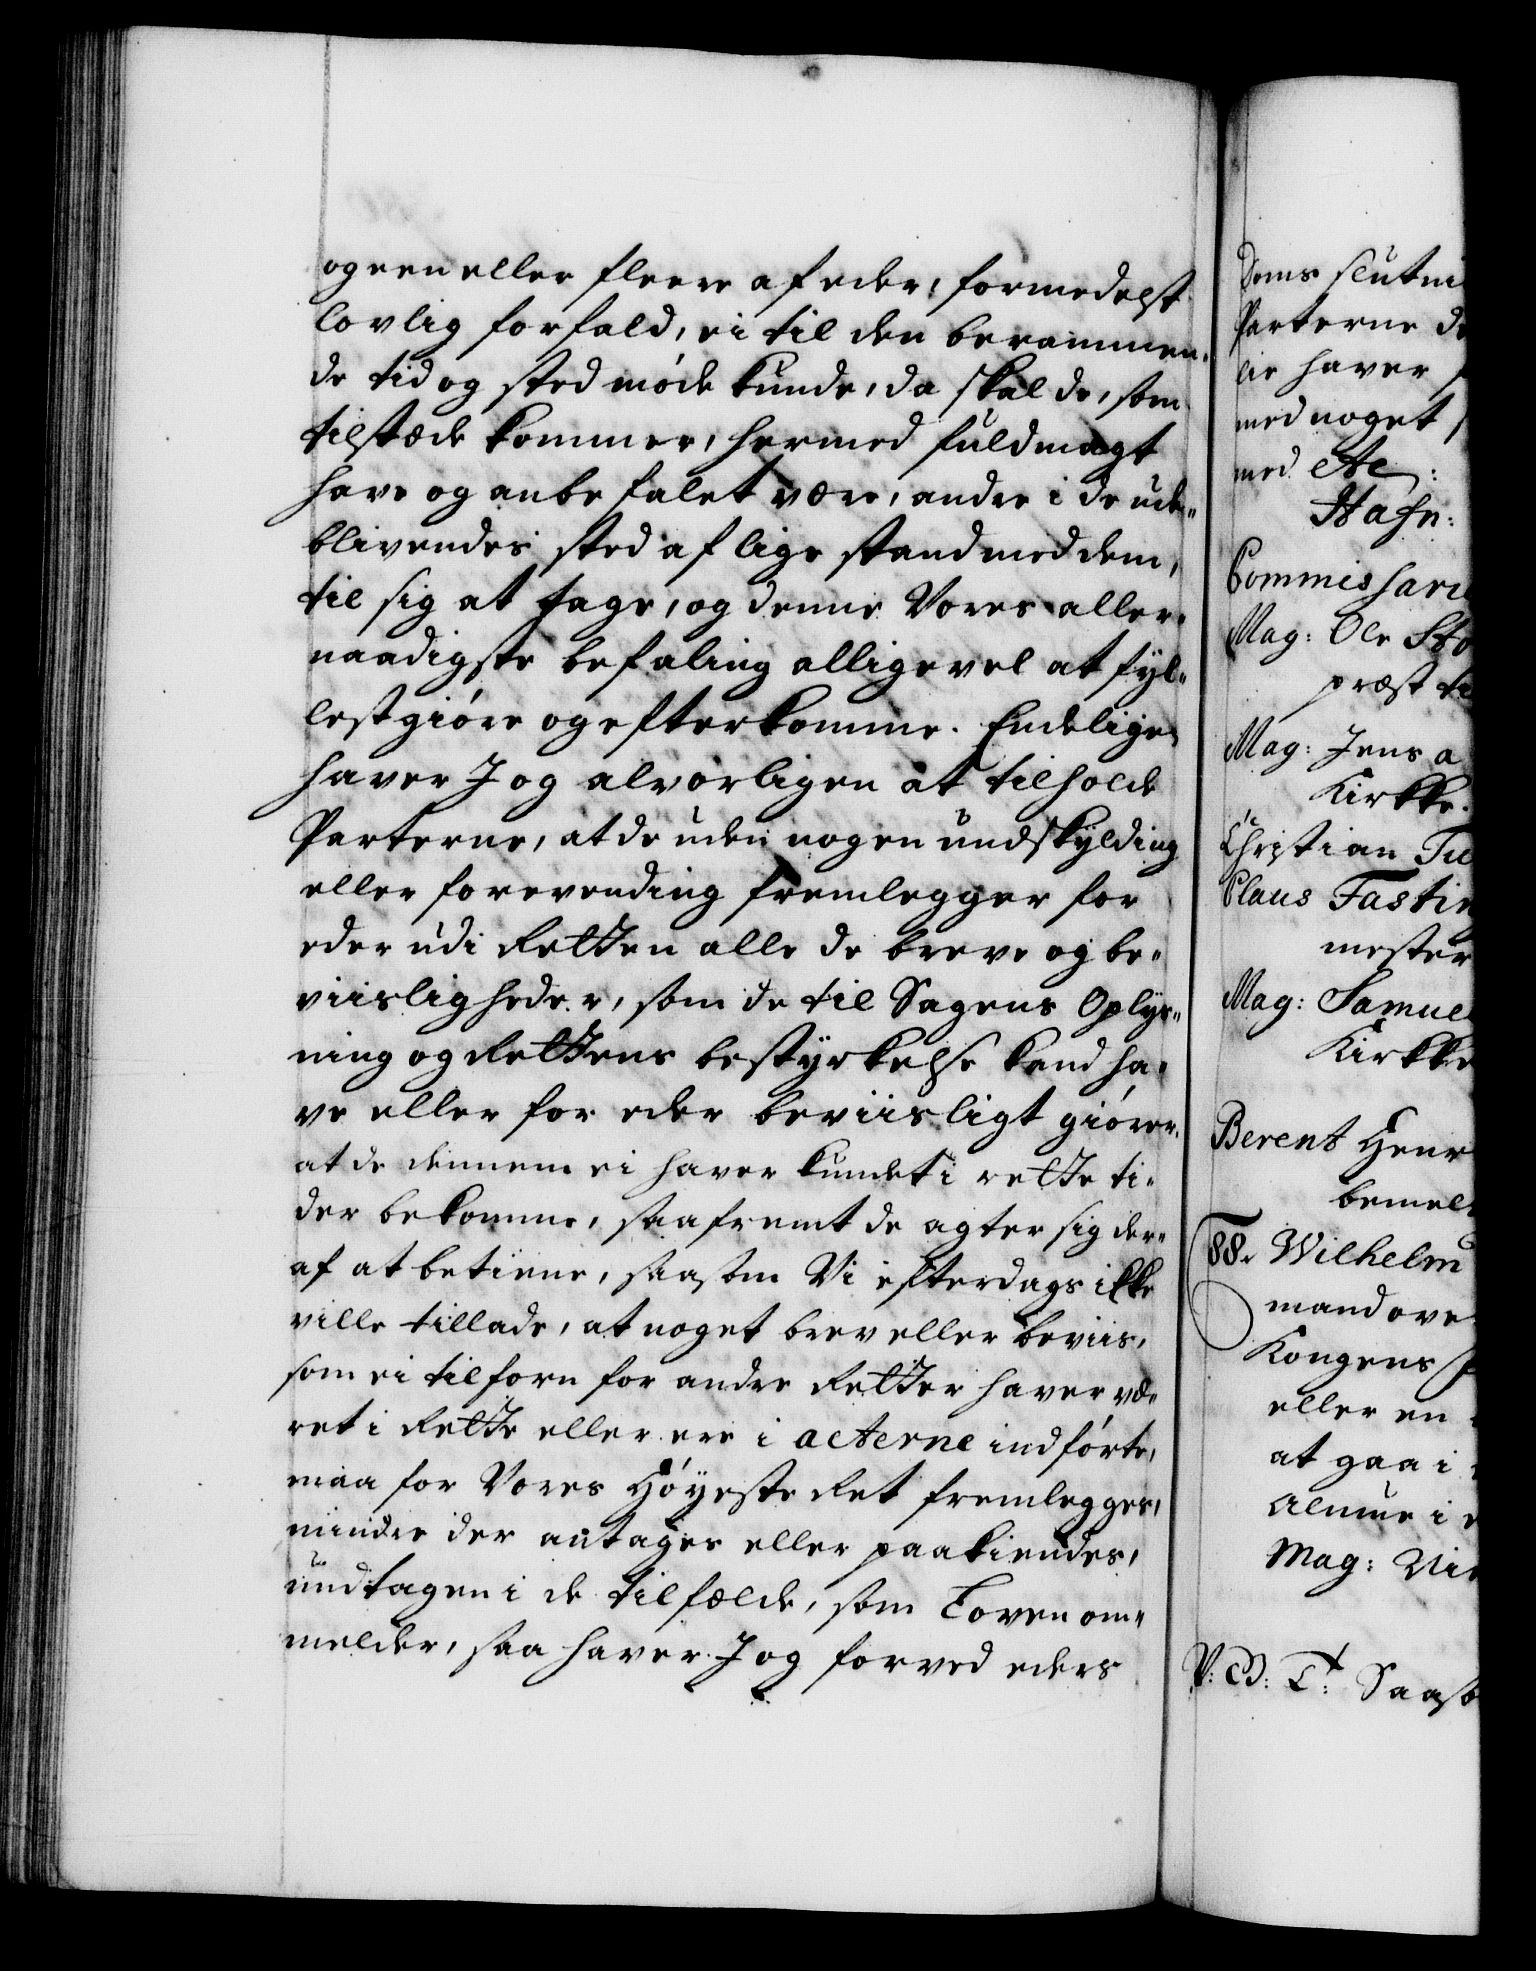 og een eller fleere af eder, formedelst
lovlig forfald, ei til den berammen„
de tid og sted møde kunde, da skal de, som
tilstæde kommer, hermed fuldmagt
have og anbefalet være, andre i de ude„
blivendes sted af lige stand med dem,
til sig at tage, og denne Vores aller„
naadigste befaling alligevel at fyl„
lestgiøre og efterkomme. Endeligen
haver I og alvorligen at tilholde
Parterne, at de uden nogen undskylding
eller forevending fremlegger for
eder udi Retten alle de breve og be„
viisligheder, som de til Sagens Oplys„
ning og Rettens bestyrkelse kand ha„
ve eller for eder beviisligt giører,
at de dennem ei haver kundet i rette ti„
der bekomme, saafremt de agter sig der„
af at betiene, saasom Vi efterdags ikke
ville tillade, at noget brev eller beviis,
som ei tilforn for andre Retter haver væ„
ret i Rette eller ere i acterne indførte,
maa for Vores Høyeste Ret fremlegges,
mindre der antages eller paakiendes,
undtagen i de tilfælde, som Loven om„
melder, saa haver I og forved eders
Doms slutni
Parterne de
lie haver
med noget
med etc:
Hafn:
Commissari
Mag: Ole Sto
præst ti
Mag: Jens a
Kirkke.
Christian Tu
Claus Fastin
mester
Mag: Samuel
Kirkke
Berent Henr
bemel
88. Wilhelm
mand ove
Kongens
eller en
at gaa i
Almue i
Mag: Nie
V: G: T: Saaso